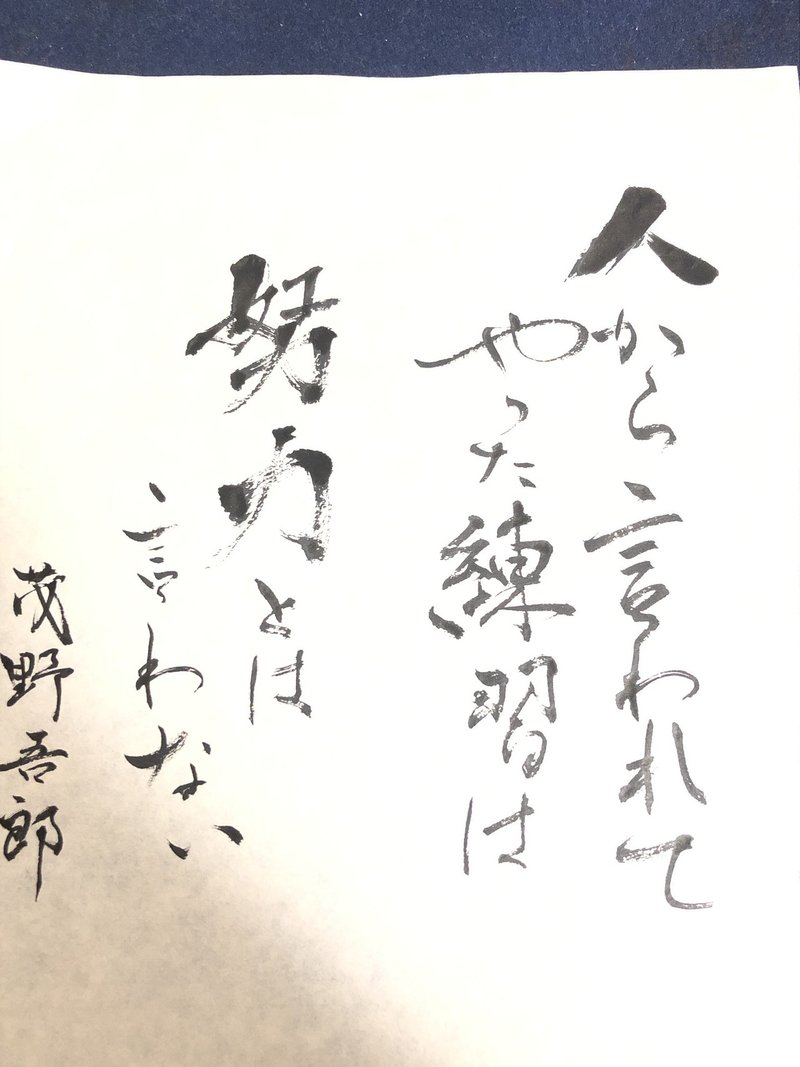 人から言われて
やった練習は
努力とは
言わない
茂野吾郎